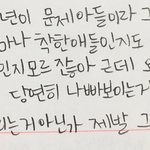 년이 문제아들이라 그
마나 착한애들인지도
인지모르 잖아 근데
당연히 나빠보이는거
되는거아닌가 제발 그